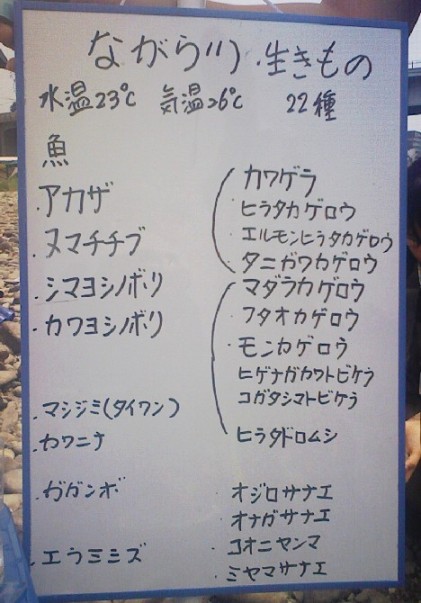 ながら川・生きもの
水温23℃ 気温26℃ 22種
魚
・アカザ
・ヌマチチブ
・シマヨシノボリ
・カワヨシノボリ
・マシジミ(タイワン)
・カワニナ
・ガガンボ
・エラミミズ
・カワゲラ
・ヒラタカゲロウ
・エルモンヒラタカゲロウ
・タニガワカゲロウ
・マダラカゲロウ
・フタオカゲロウ
・モンカゲロウ
・ヒゲナガカワトビケラ
・コガタシマトビケラ
・ヒラタドロムシ
・オジロサナエ
・オナガサナエ
・コオニヤンマ
・ミヤマサナエ